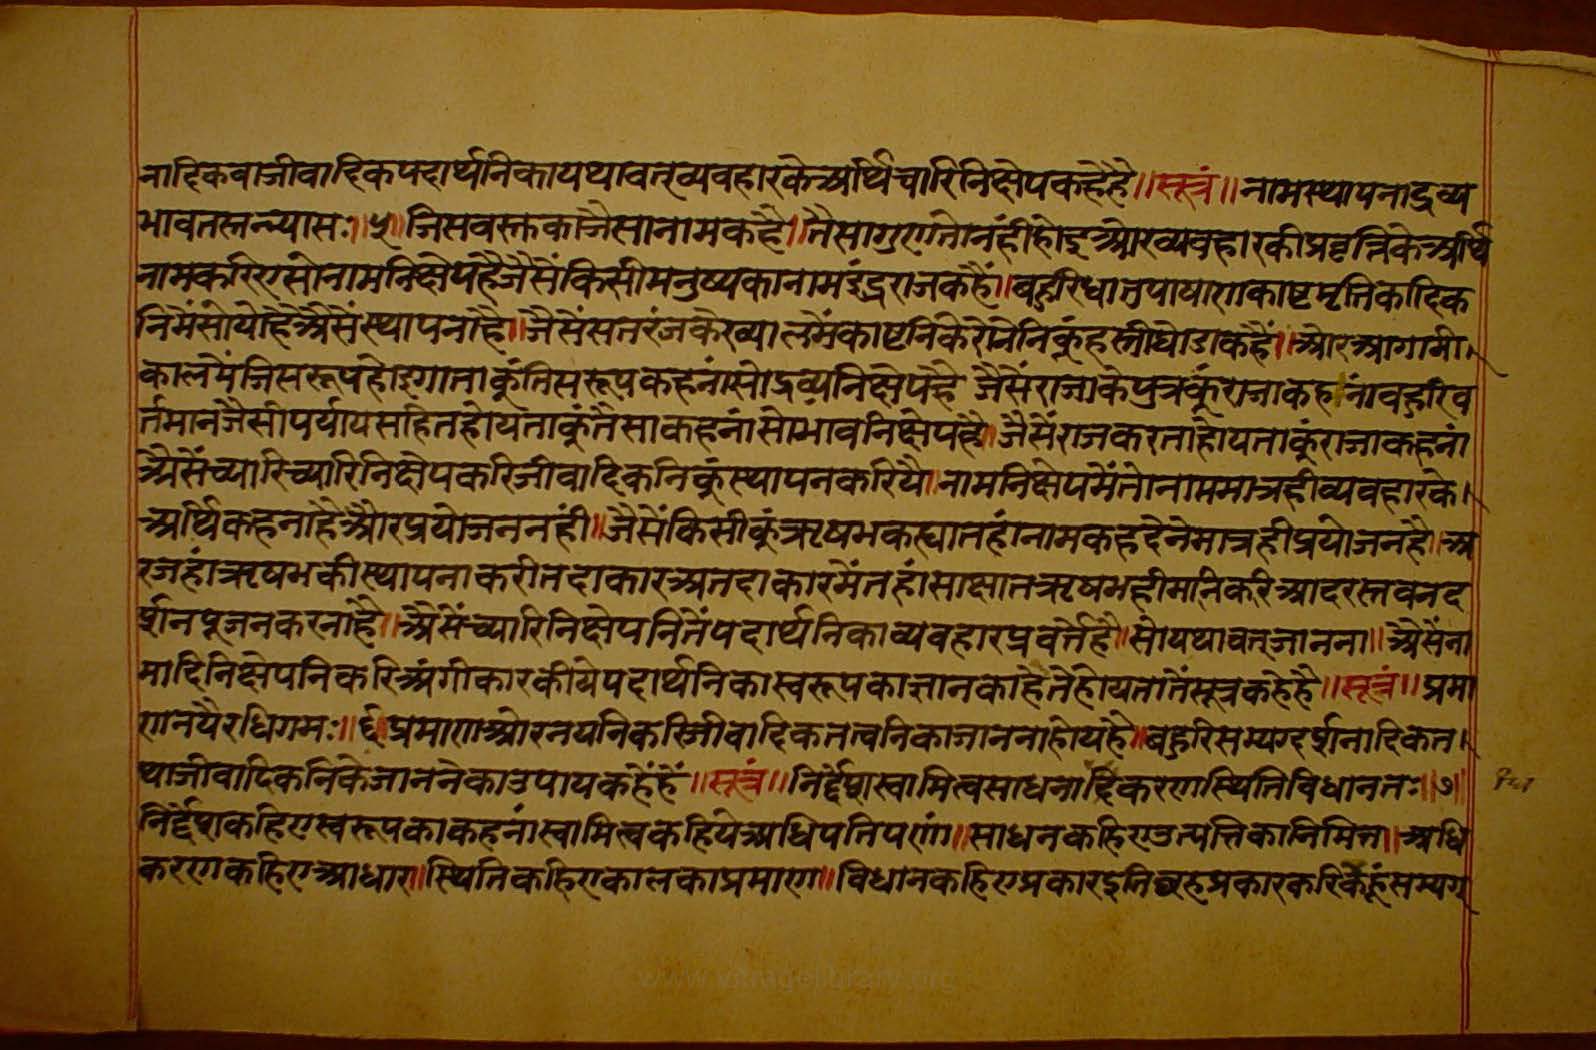 नादिकवाजीवादिकपदार्थनिकायथावतव्यवहारकेअर्थिचारिनिक्षेपकहेहै॥सूत्रं॥नामस्थापनाद्रव्य
भावतस्तन्न्यासः॥५॥जिसवस्तकाजैसानामकहै॥तैसागुणतोनंहीहोइओरव्यवहारकीप्रवृत्तिकेअर्थि
नामकरिएसोनामनिक्षेपहैजैसेंकिसीमनुष्यकानामइंद्रराजकहैं॥बहुरिधातुपाषाणकाष्टमृत्तिकादिक
निमैंसोयोहैअैसैंस्थापनाहै॥जैसेंसतरंजकेख्यालमैंकाष्टनिकेरोनेनिकूंहस्तीघोडाकहैं॥ओरआगामी
कालमैंजिसरूपहोइगाताकुंतिसरूपकहनांसोद्रव्यनिक्षेपहै जैसेंराजाकेपुत्रकूंराजाकहनांबहुरिव
र्तमानजैसीपर्यायसहितहोयताकुंतैसाकहनांसोभावनिक्षेपहै॥जैसेंराजकरताहोयताकूंराजाकहनां
अैसैंच्यारिच्यारिनिक्षेपकरिजीवादिकनिकुंस्थापनकरियै॥नामनिक्षेपमेंतोनाममात्रहीव्यवहारके
अर्थिकहनाहैऔरप्रयोजननंही॥जैसेंकिसीकुंऋषभकह्यातहांनामकहदेनेमात्रहीप्रयोजनहै॥अ
रजहांऋषभकीस्थापनाकरीतदाकारअतदाकारमेंतहांसाक्षातऋषभहीमानिकरिआदरस्तवनद
र्शनपूजनकरनाहै॥अैसेंच्यारिनिक्षेपनितैंपदार्थनिकाव्यवहारप्रवर्तेहै॥सोयथावतजानना॥अैसेंना
मादिनिक्षेपनिकरिअंगीकारकीयेपदार्थनिकास्वरूपकाज्ञानकाहेतेहोयतातैंसूत्रकहेहै॥सूत्रं॥प्रमा
णनयैरधिगमः॥६॥प्रमाणओरनयनिकरिजीवादिकतत्वनिकाजाननाहोयहै॥बहुरिसम्यग्दर्शनादिकेत
थाजीवादिकनिकेजाननेकाउपायकहेंहें॥सूत्रं॥निर्द्देशस्वामित्वसाधनाधिकरणस्थितिविधानतः॥७॥
निर्द्देशकहिएस्वरूपकाकहनांस्वामित्वकहियेअधिपतिपणां॥साधनकहिएउत्पत्तिकानिमित्त॥अधि
करणकहिएआधार॥स्थितिकहिएकालकाप्रमाण॥विधानकहिएप्रकारइनिछहप्रकारकरिकेहूंसम्यग्
www.vitragelibrary.org